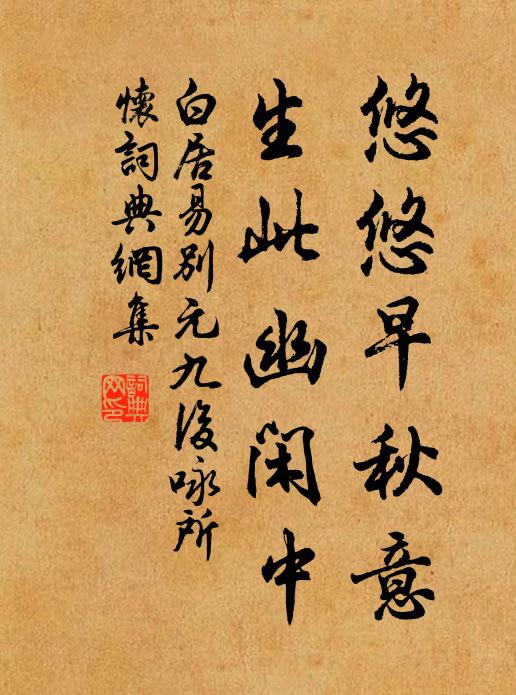 悠悠早秋意
生此幽閑中
白居易別元九後咏所
懷詞典網集
詞典
网印